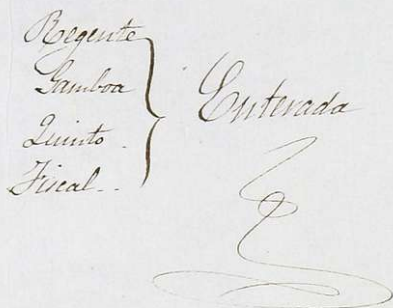 Regente
Gamboa
Quinto.
Fiscal..
Enterada